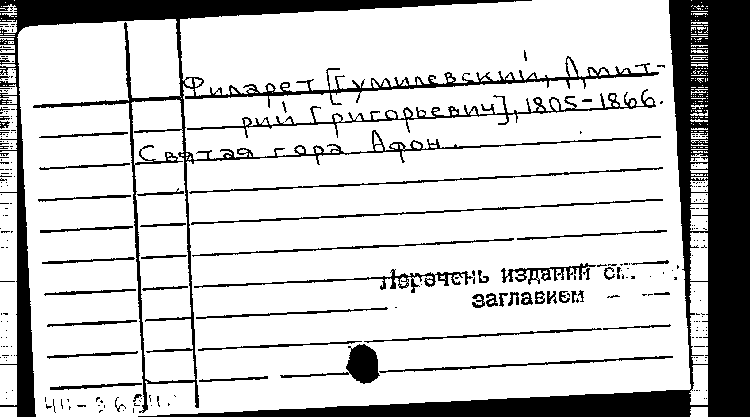 Филарет [Гумилевский, Дмит-
рий Григорьевич], 1805-1866.
Святая гора Афон.
Перечень изданий см.
заглавием